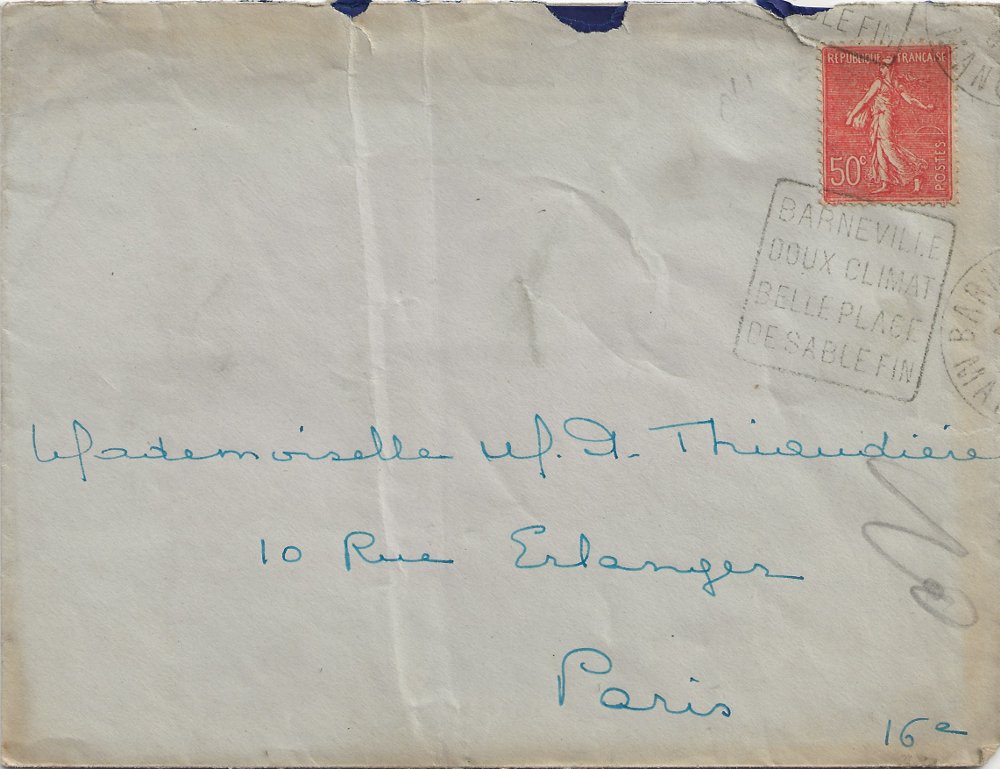 SABLE FIN
RÉPUBLIQUE FRANÇAISE
50c
POSTES
BARNEVILLE
DOUX CLIMAT
BELLE PLAGE
DE SABLE FIN
Mademoiselle M. A. Thieudière
10 Rue Erlanger
Paris
16e